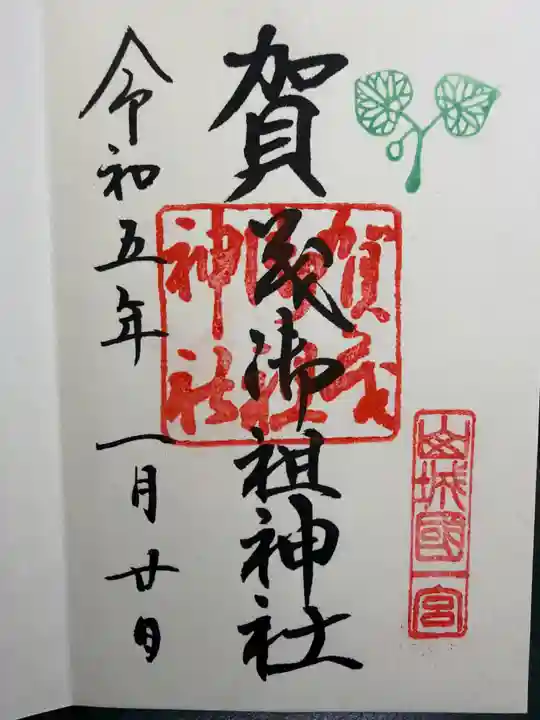 山城國一宮
賀茂御祖神社
賀茂
御祖
神社
令和五年一月廿日